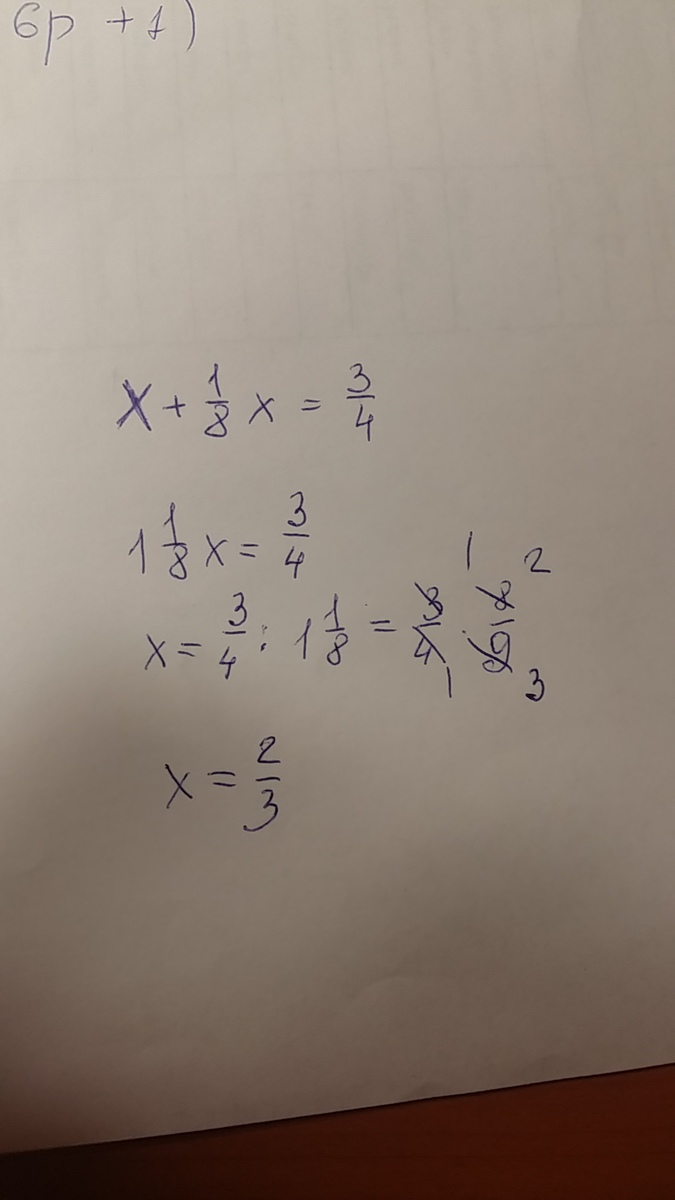 6p + 1)
x + 1/8 x = 3/4
1 1/8 x = 3/4
x = 3/4 : 1 1/8 = 3/4 · 8/9 1 2 1 3
x = 2/3